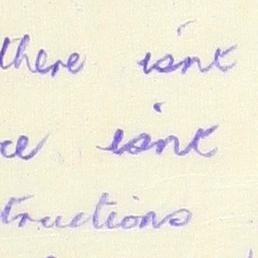 there isn't
ce isn't
tructions